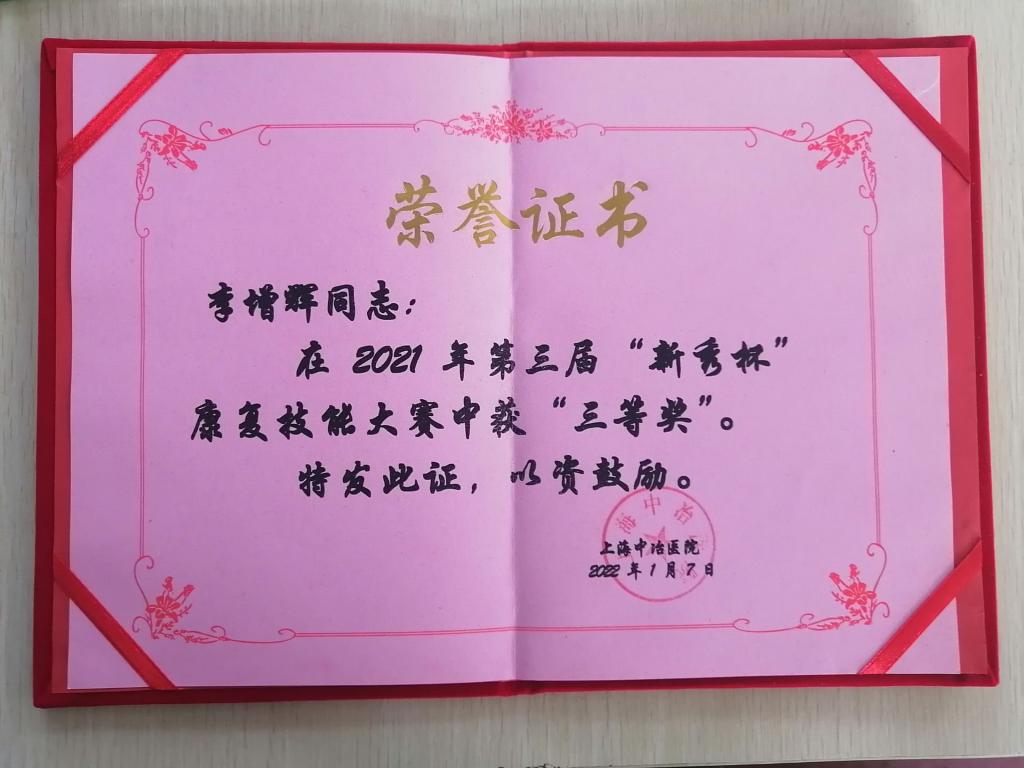 荣誉证书
李增辉同志：
在 2021 年第三届“新秀杯”
康复技能大赛中获“三等奖”。
特发此证，以资鼓励。
海中冶
上海中冶医院
2022 年 1 月 7 日